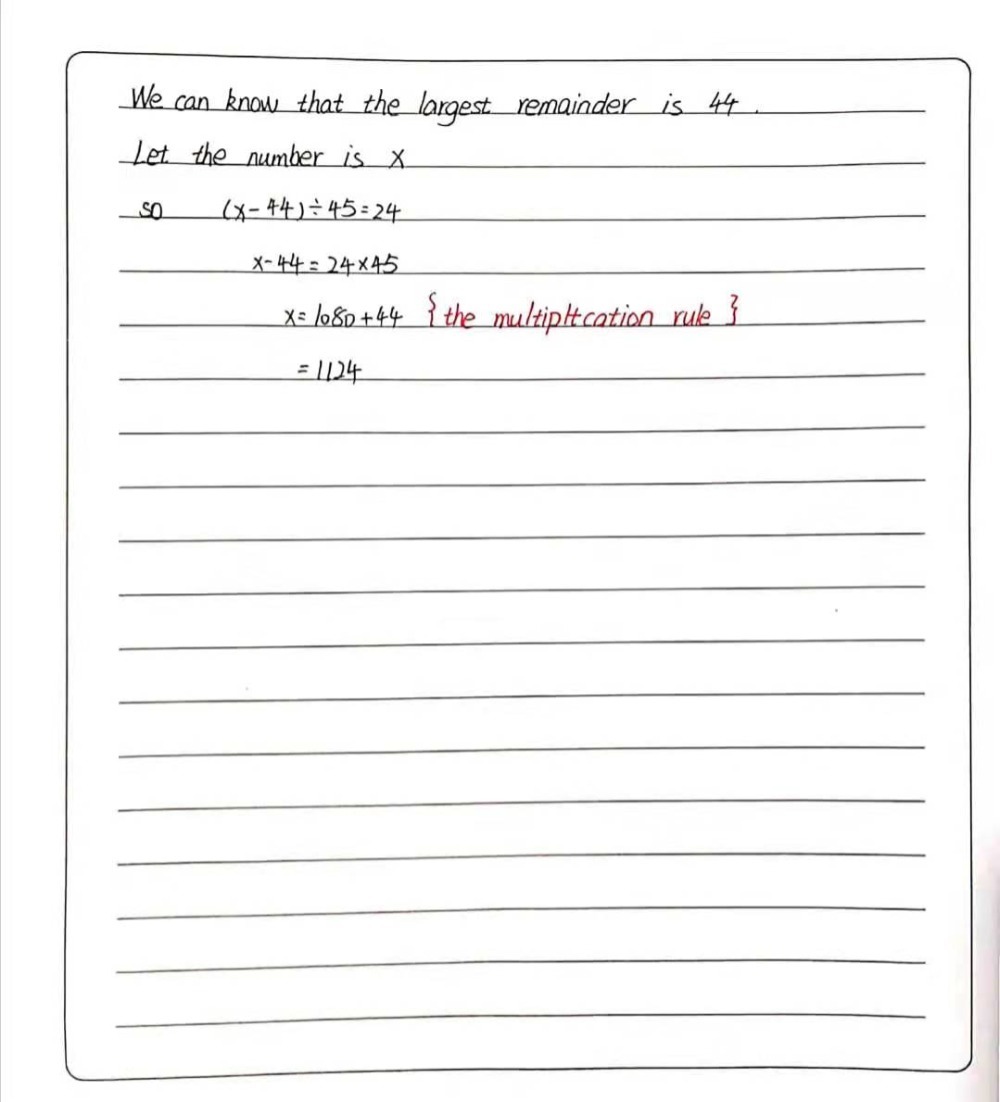 We can know that the largest remainder is 44.
Let the number is x
so (x-44)÷45=24
x-44=24×45
x=1080+44 {the multipltcation rule}
=1124